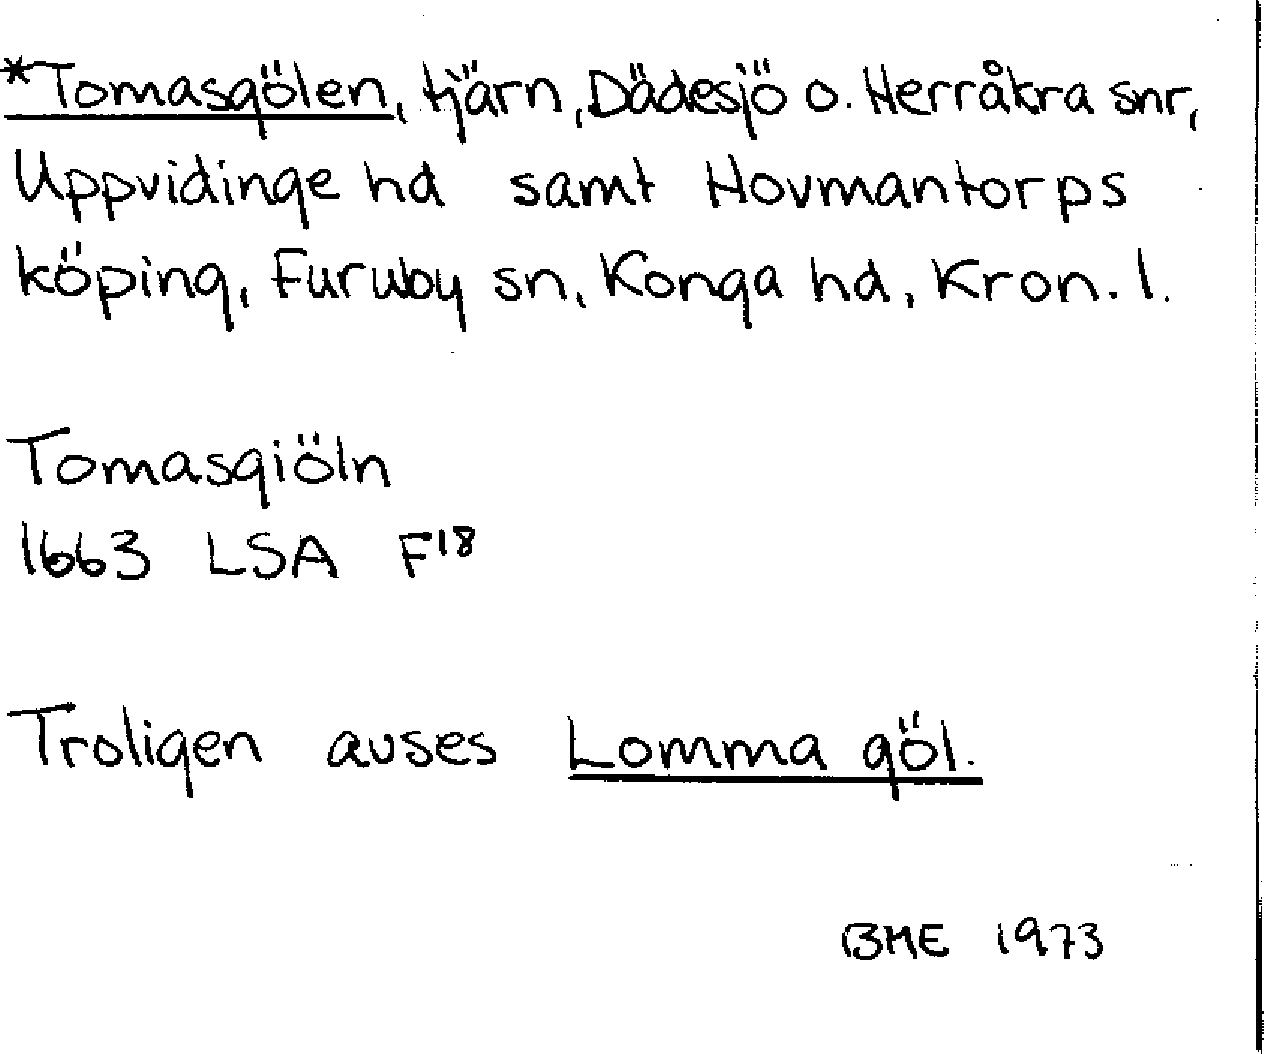 *Tomasgölen, tjärn, Dädesjö o. Herråkra snr,
Uppvidinge hd samt Hovmantorps
köping, Furuby sn, Konga hd, Kron. l.
Tomasgiöln
1663 LSA F18
Troligen avses Lomma göl.
BME 1973